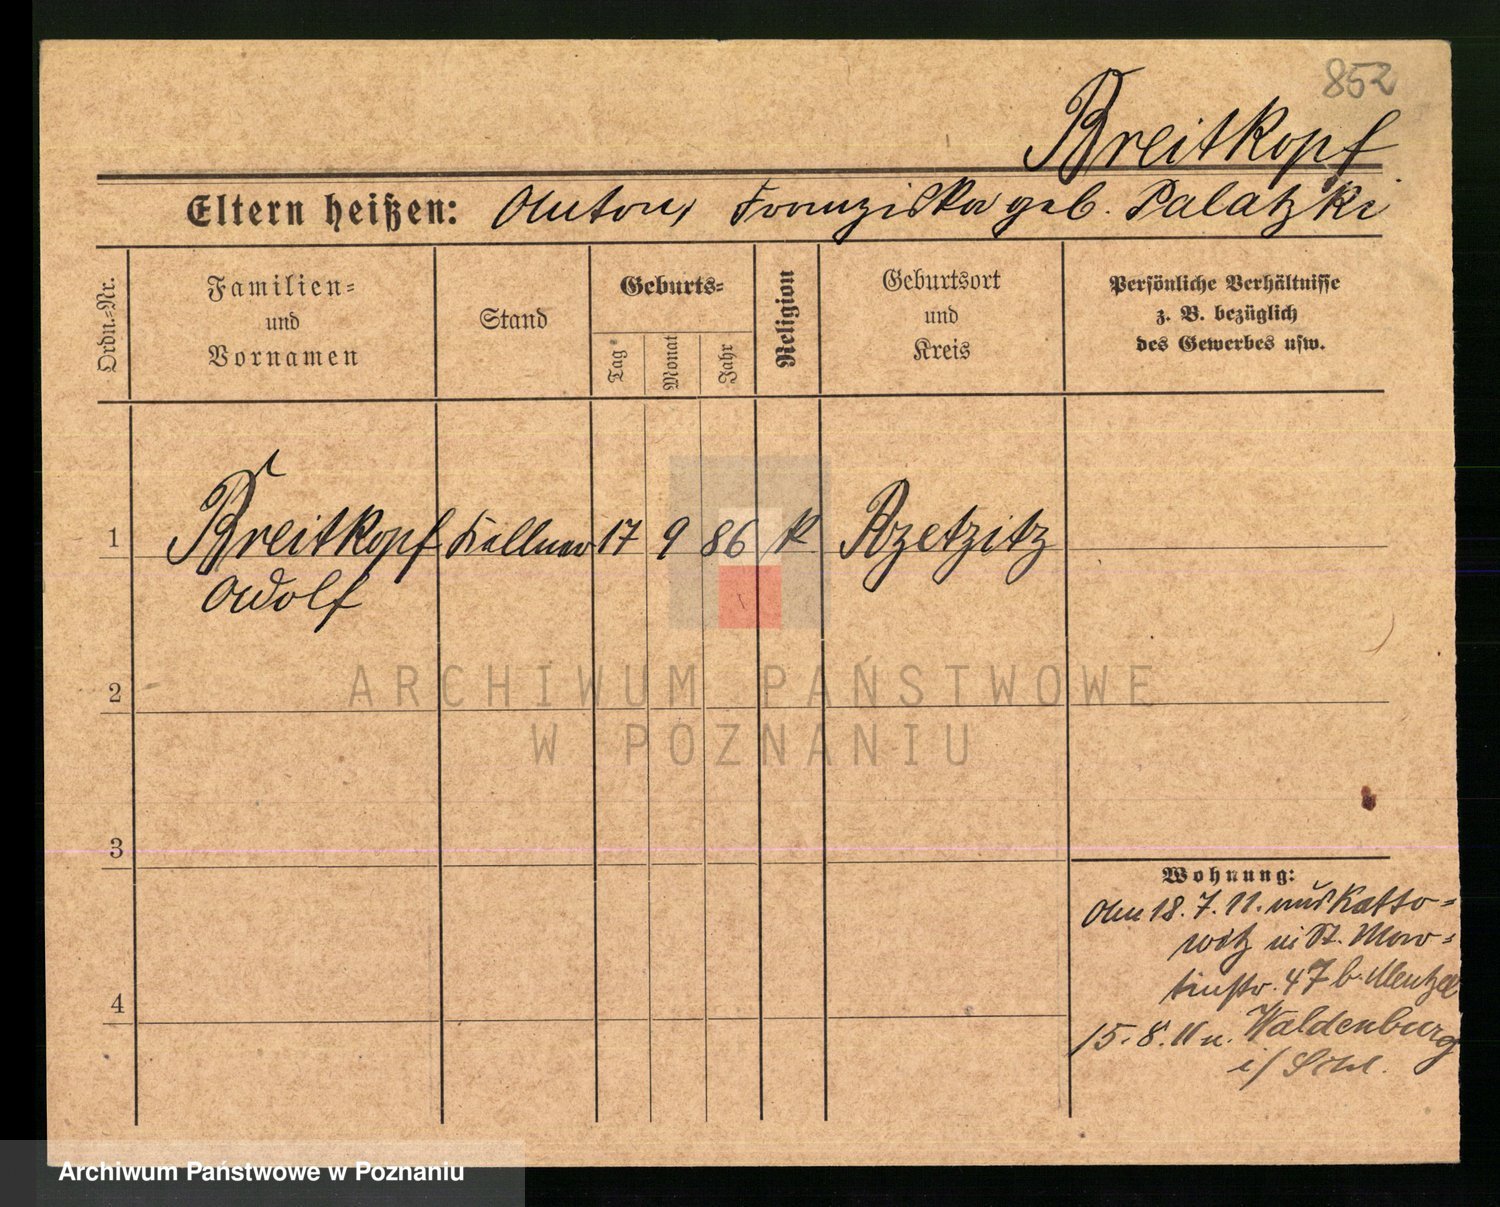 852
Breitkopf
Eltern heißen: Anton, Franziska geb. Palatzki
Ordn.-Nr.
Familien-
und
Vornamen
Stand
Geburts-
Tag
Monat
Jahr
Religion
Geburtsort
und
Kreis
Persönliche Verhältnisse
z. B. bezüglich
des Gewerbes usw.
1 Breitkopf Kellner 17 9 86 k Rzetzitz
Adolf
2
ARCHIWUM PAŃSTWOWE
W POZNANIU
3
Wohnung:
18. 7. 11. aus Katto-
witz St. Mar-
tinstr. 47 b. Mentzel
4
15. 8. 11 n. Waldenburg
i/ Schl.
Archiwum Państwowe w Poznaniu